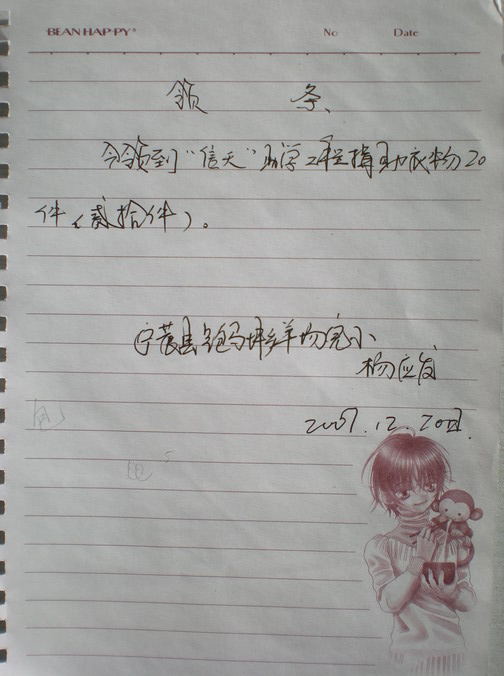 BEAN HAPPY®
No Date
领 条
今领到“信天”助学工程捐助衣物20
件(贰拾件)。
宁蒗县跑马坪乡羊场完小
杨应发
2007.12.20日.